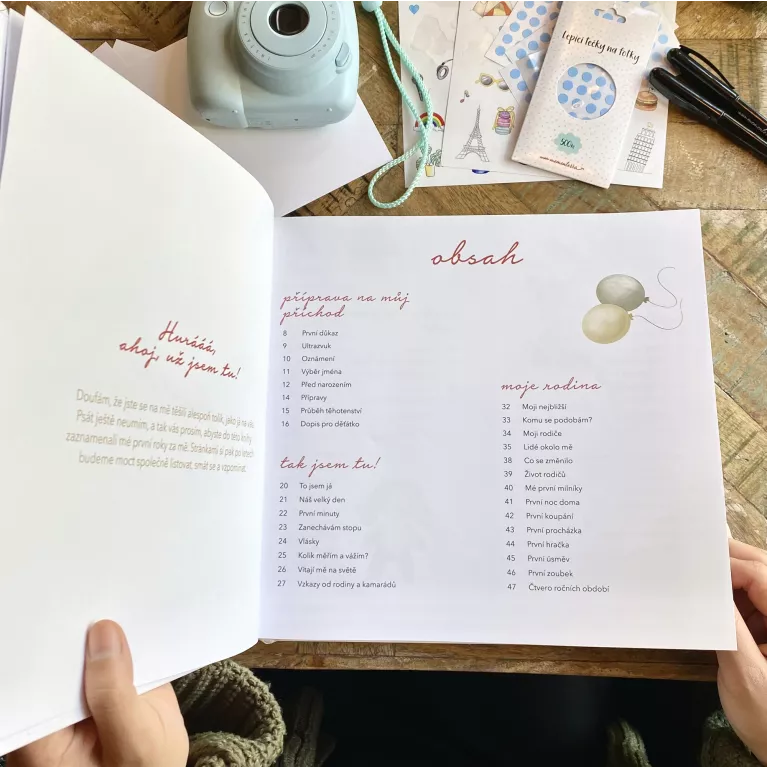 Lepicí tečky na fotky
500x
Hurááá,
ahoj, už jsem tu!
Doufám, že jste se na mě těšili alespoň tolik, jako já na vás.
Psát ještě neumím, a tak vás prosím, abyste do této knihy
zaznamenali mé první roky za mě. Stránkami si pak po letech
budeme moct společně listovat, smát se a vzpomínat.
obsah
příprava na můj
příchod
8 První důkaz
9 Ultrazvuk
10 Oznámení
11 Výběr jména
12 Před narozením
14 Přípravy
15 Průběh těhotenství
16 Dopis pro děťátko
tak jsem tu!
20 To jsem já
21 Náš velký den
22 První minuty
23 Zanechávám stopu
24 Vlásky
25 Kolik měřím a vážím?
26 Vítají mě na světě
27 Vzkazy od rodiny a kamarádů
moje rodina
32 Moji nejbližší
33 Komu se podobám?
34 Moji rodiče
35 Lidé okolo mě
38 Co se změnilo
39 Život rodičů
40 Mé první milníky
41 První noc doma
42 První koupání
43 První procházka
44 První hračka
45 První úsměv
46 První zoubek
47 Čtvero ročních období